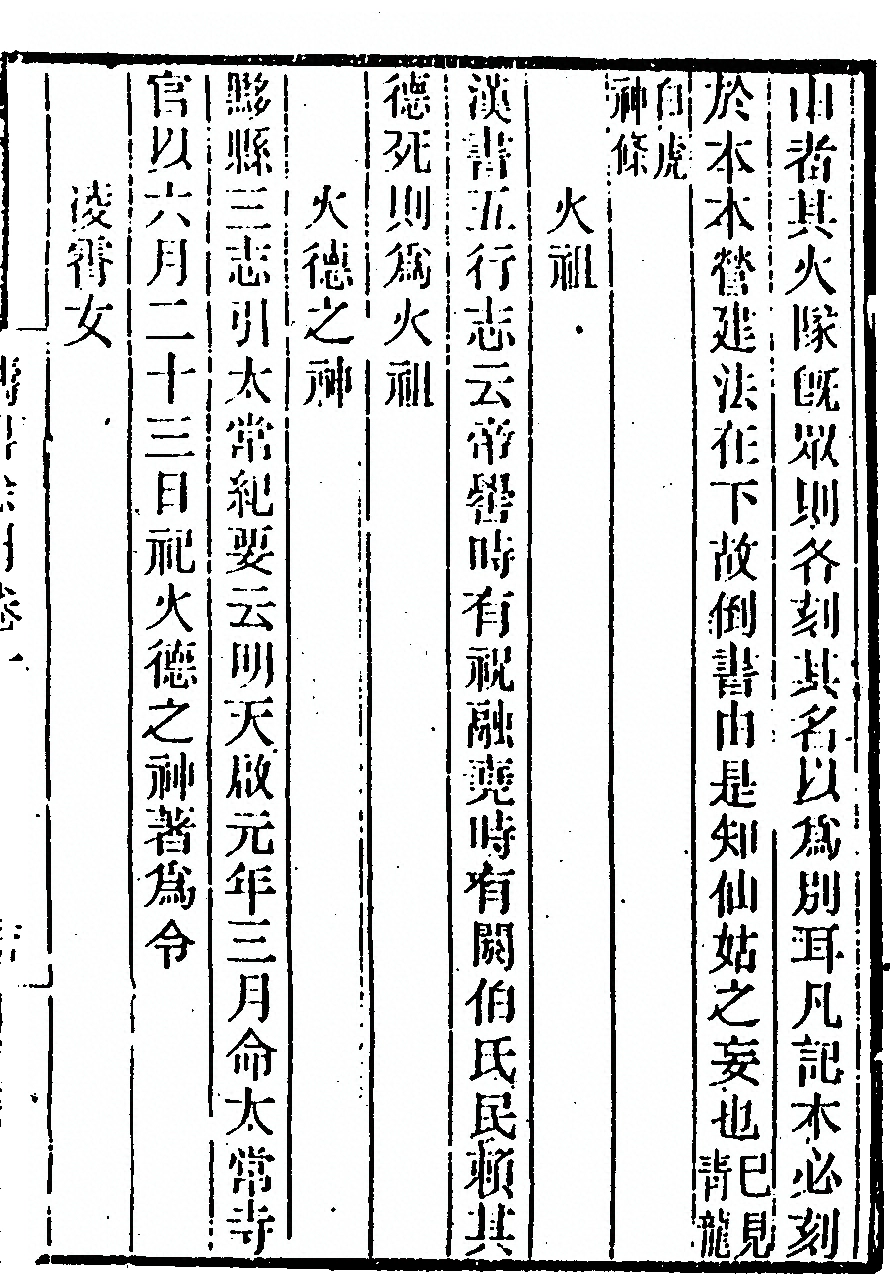 由者其火隊既眾則各刻其名以為別耳凡記木必刻
於本本營建法在下故倒書由是知仙姑之妄也已見青龍
白虎神條
火祖
漢書五行志云帝嚳時有祝融堯時有閼伯氏民賴其
德死則為火祖
火德之神
黟縣三志引太常紀要云明天啟元年三月命太常寺
官以六月二十三日祀火德之神著為令
凌霄女
卷一